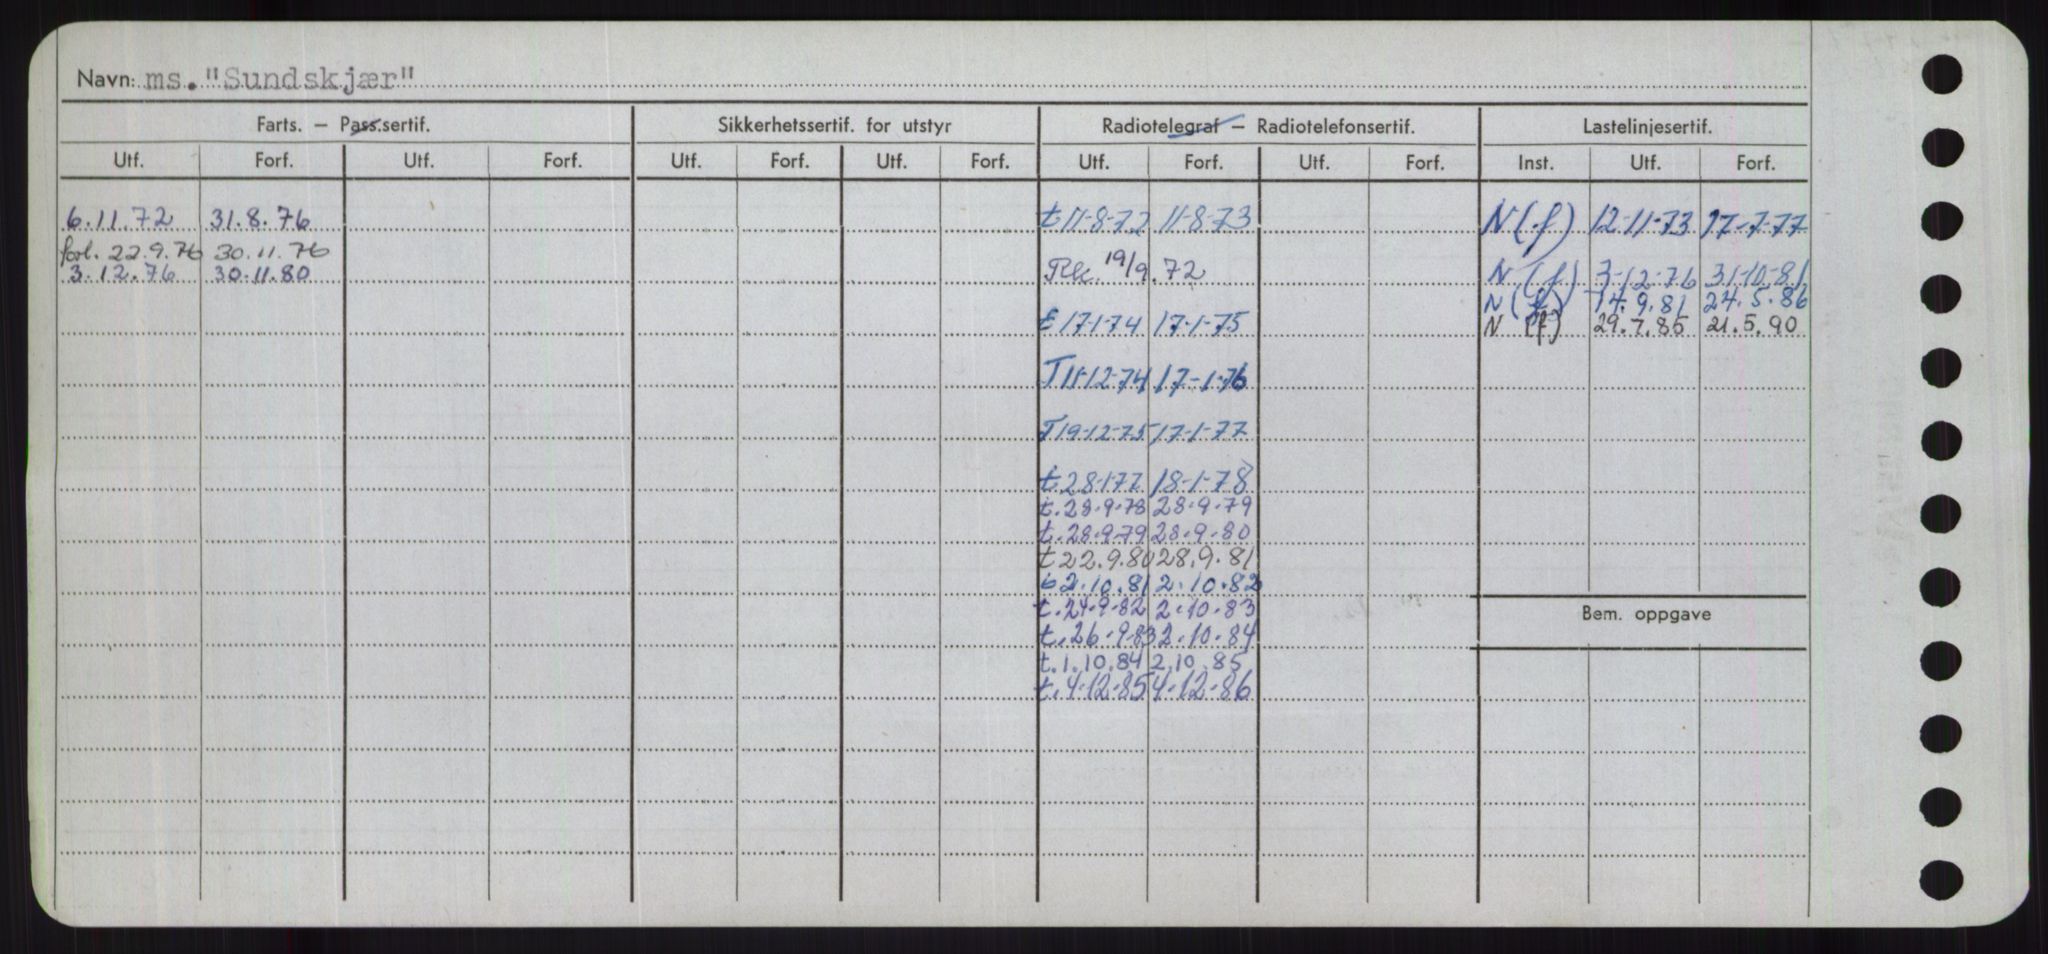 Navn: ms. "Sundskjær"
Farts. — Pass.sertif. Sikkerhetssertif. for utstyr Radiotelegraf — Radiotelefonsertif. Lastelinjesertif.
Utf. Forf. Utf. Forf. Utf. Forf. Utf. Forf. Utf. Forf. Utf. Forf. Inst. Utf. Forf.
6.11.72 31.8.76 t 11-8-72 11-8-73 N(f) 12-11-73 17-7-77
forl. 22.9.76 30.11.76
3.12.76 30.11.80 19/9.72 N(f) 3-12-76 31-10-81
N(f) 14.9.81 24.5.86
t 17-1-74 17-1-75 N (f) 29.7.85 21.5.90
T 11-12-74 17-1-76
T 19-12-75 17-1-77
t 28-1-77 18-1-78
t. 28-9-78 28-9-79
t. 28-9-79 28-9-80
t 22.9.80 28.9.81
2.10.81 2.10.82
t. 24-9-82 2-10-83
Bem. oppgave
t. 26-9-83 2-10-84
t. 1.10.84 2.10.85
t. 4-12-85 4-12-86